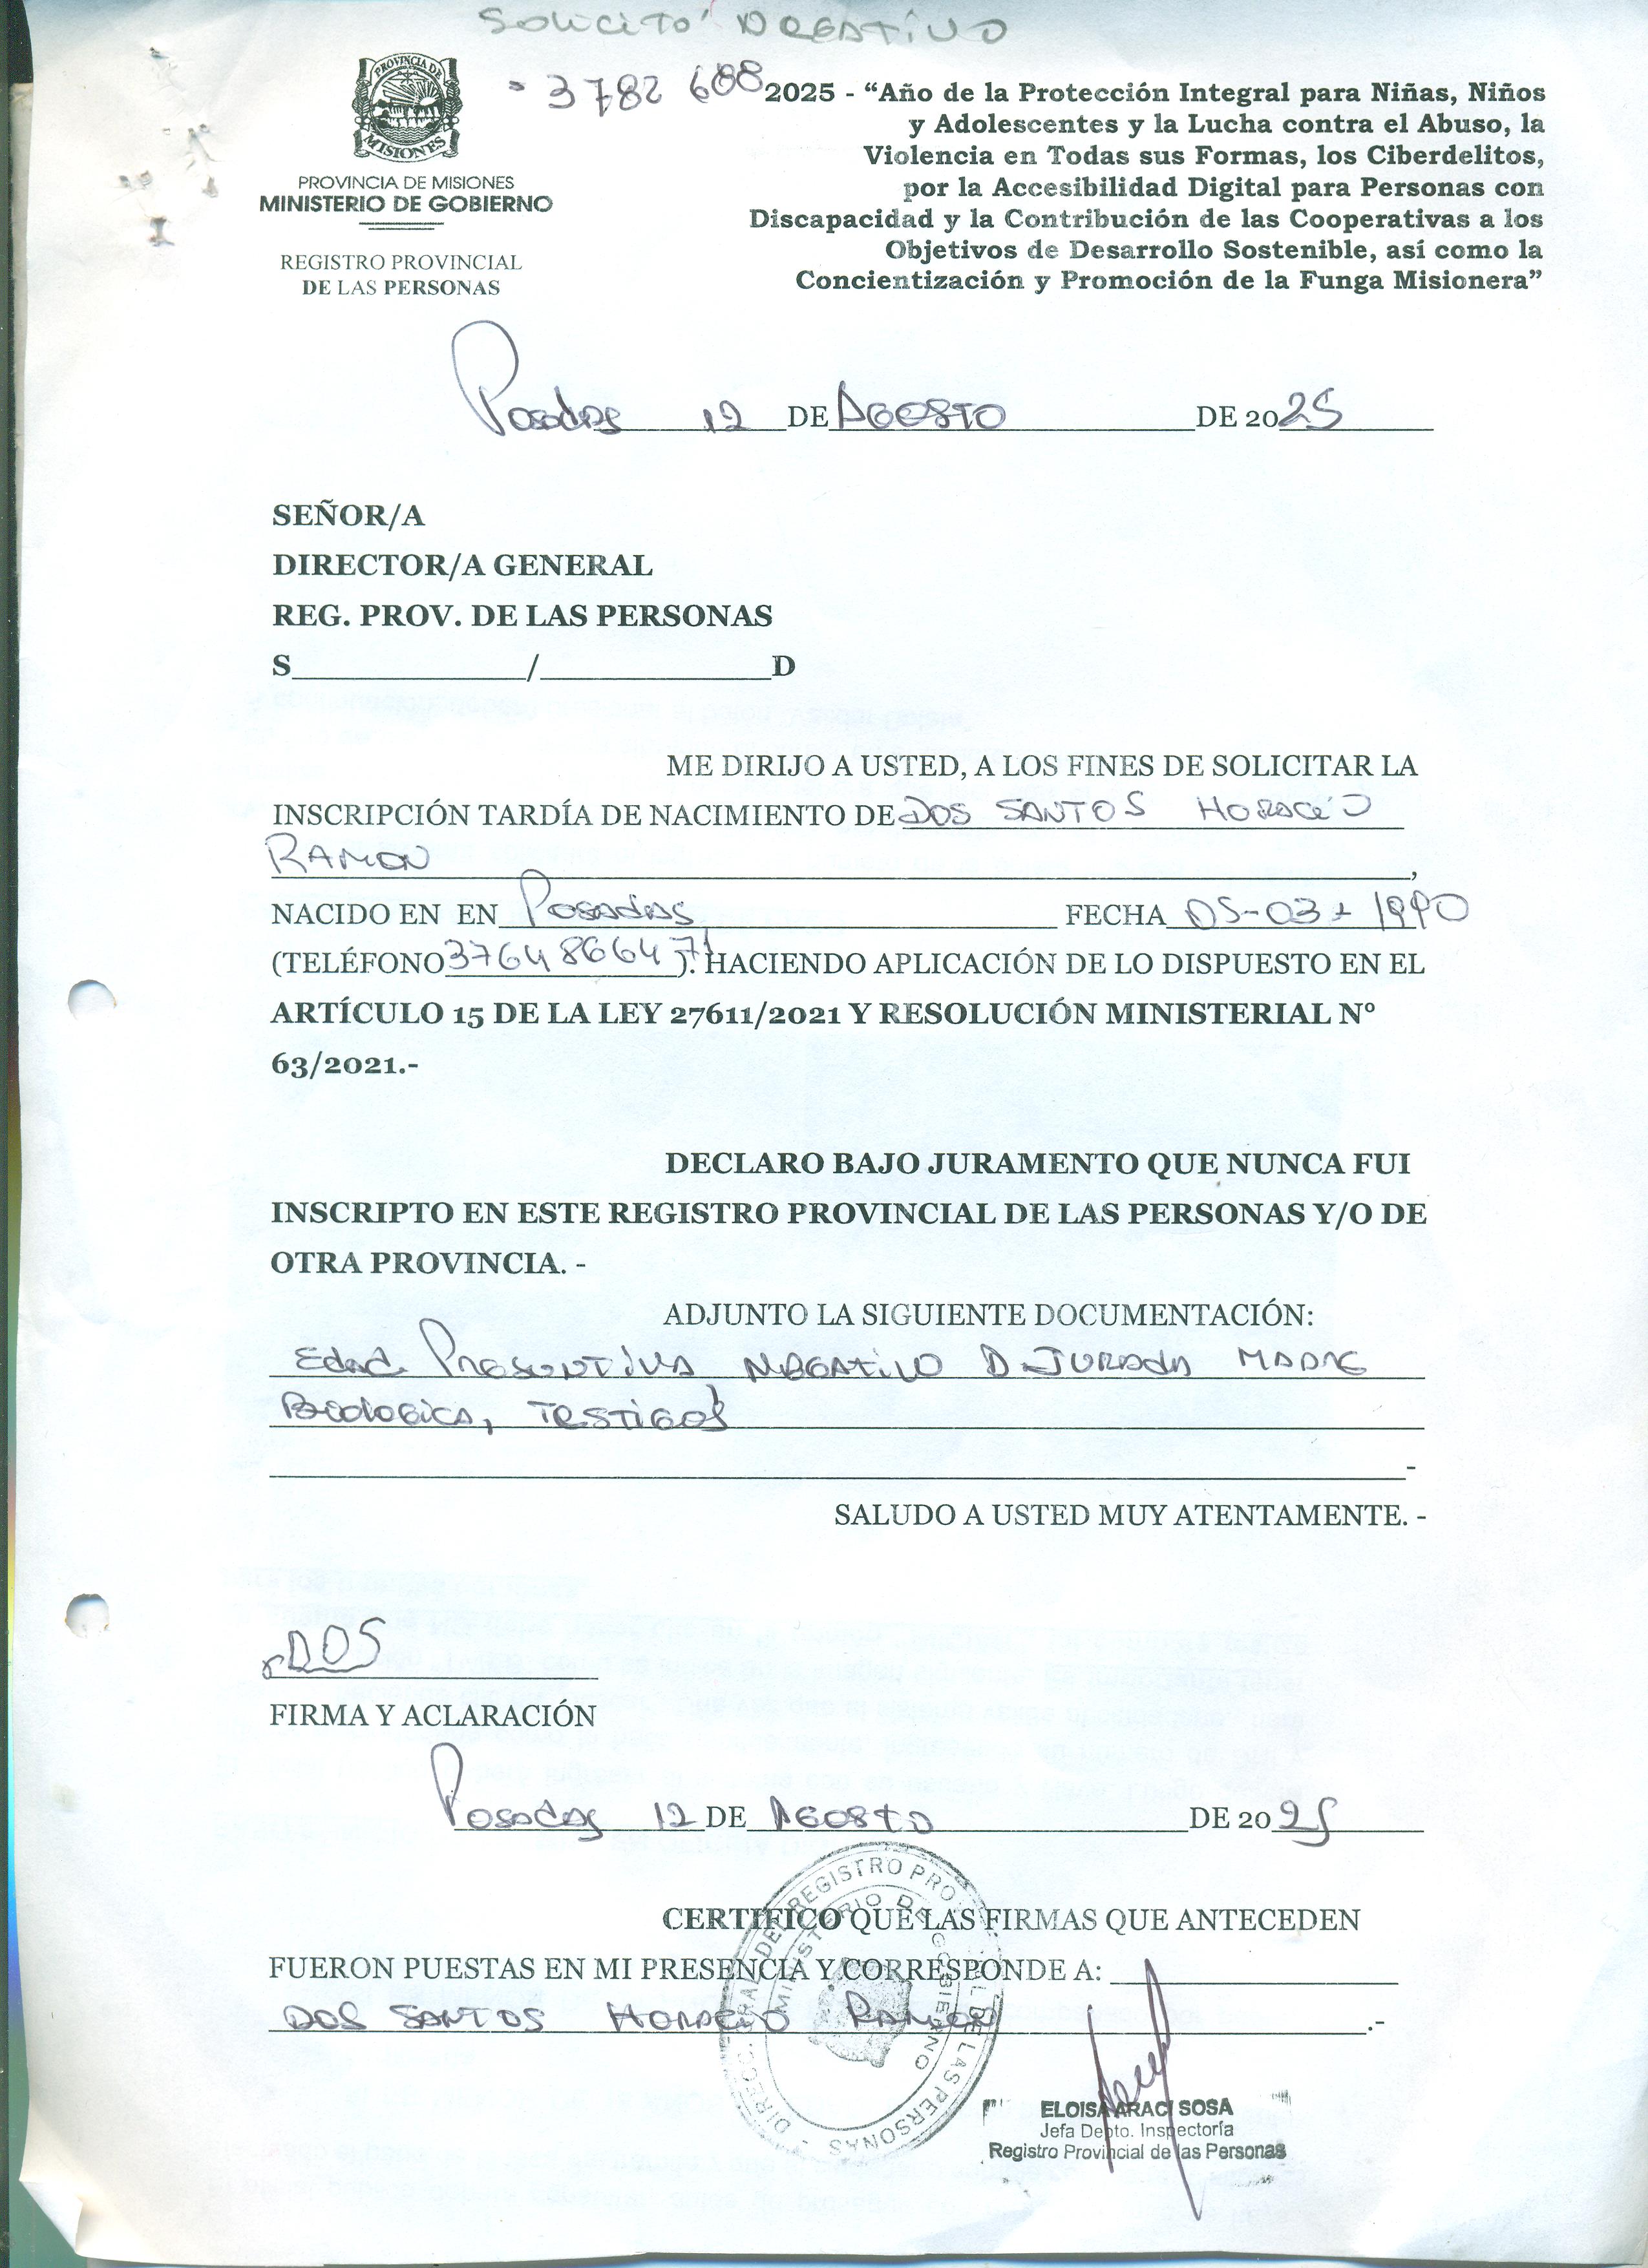 SOLICITO NEGATIVO
- 3782 688
PROVINCIA DE
MISIONES
PROVINCIA DE MISIONES
MINISTERIO DE GOBIERNO
REGISTRO PROVINCIAL
DE LAS PERSONAS
2025 - “Año de la Protección Integral para Niñas, Niños
y Adolescentes y la Lucha contra el Abuso, la
Violencia en Todas sus Formas, los Ciberdelitos,
por la Accesibilidad Digital para Personas con
Discapacidad y la Contribución de las Cooperativas a los
Objetivos de Desarrollo Sostenible, así como la
Concientización y Promoción de la Funga Misionera”
Posadas 12 DE AGOSTO DE 2025
SEÑOR/A
DIRECTOR/A GENERAL
REG. PROV. DE LAS PERSONAS
S____________/____________D
ME DIRIJO A USTED, A LOS FINES DE SOLICITAR LA
INSCRIPCIÓN TARDÍA DE NACIMIENTO DE DOS SANTOS HORACIO
RAMON,
NACIDO EN EN Posadas FECHA 05-03-1990
(TELÉFONO 3764866471). HACIENDO APLICACIÓN DE LO DISPUESTO EN EL
ARTÍCULO 15 DE LA LEY 27611/2021 Y RESOLUCIÓN MINISTERIAL Nº
63/2021.-
DECLARO BAJO JURAMENTO QUE NUNCA FUI
INSCRIPTO EN ESTE REGISTRO PROVINCIAL DE LAS PERSONAS Y/O DE
OTRA PROVINCIA. -
ADJUNTO LA SIGUIENTE DOCUMENTACIÓN:
Edad Presuntiva Negativo D Jurada Madre
Biologica, Testigos
-
SALUDO A USTED MUY ATENTAMENTE. -
DOS
FIRMA Y ACLARACIÓN
Posadas 12 DE AGOSTO DE 2025
CERTIFICO QUE LAS FIRMAS QUE ANTECEDEN
FUERON PUESTAS EN MI PRESENCIA Y CORRESPONDE A:
DOS SANTOS HORACIO RAMON.-
DEL REGISTRO DE LAS PERSONAS
MINISTERIO DE GOBIERNO
ELOISA ARACI SOSA
Jefa Depto. Inspectoría
Registro Provincial de las Personas